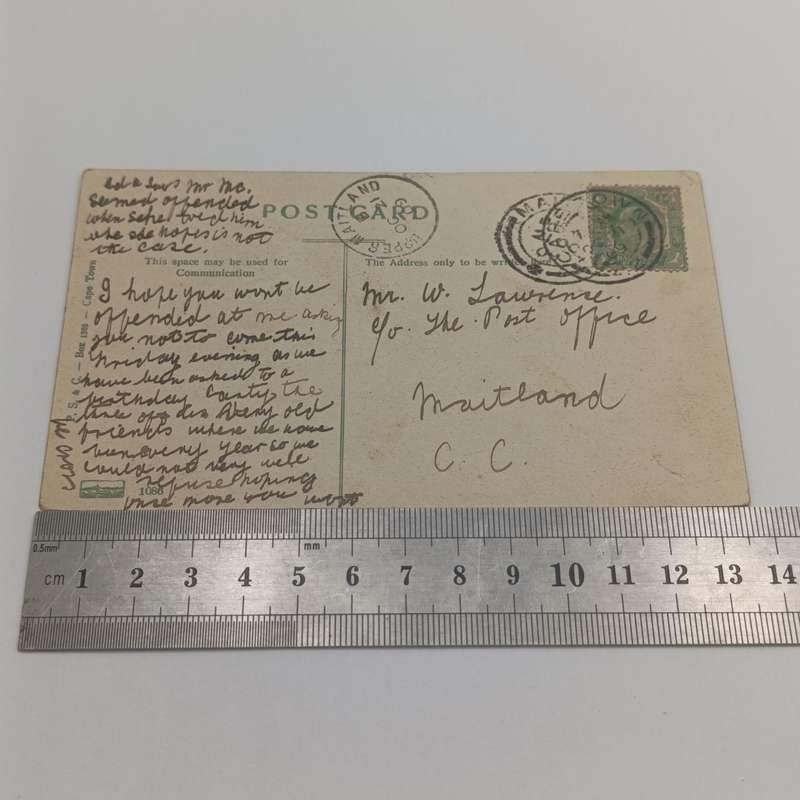 seemed offended
when Sofie told him
she hopes is not
the case.
POST CARD
UPPER MAITLAND
This space may be used for
Communication
The Address only to be
I hope you wont be
offended at me asking
you not to come this
Friday evening as we
have been asked to a
birthday Party the
old
friends where we have
been every year so we
could not very well
refuse hoping
once more you wont
be cross
P. S. & C. — Box 1389 — Cape Town
1086
Mr. W. Lawrense.
c/o. The Post Office
Maitland
C. C.
0.5mm
mm
cm 1 2 3 4 5 6 7 8 9 10 11 12 13 14